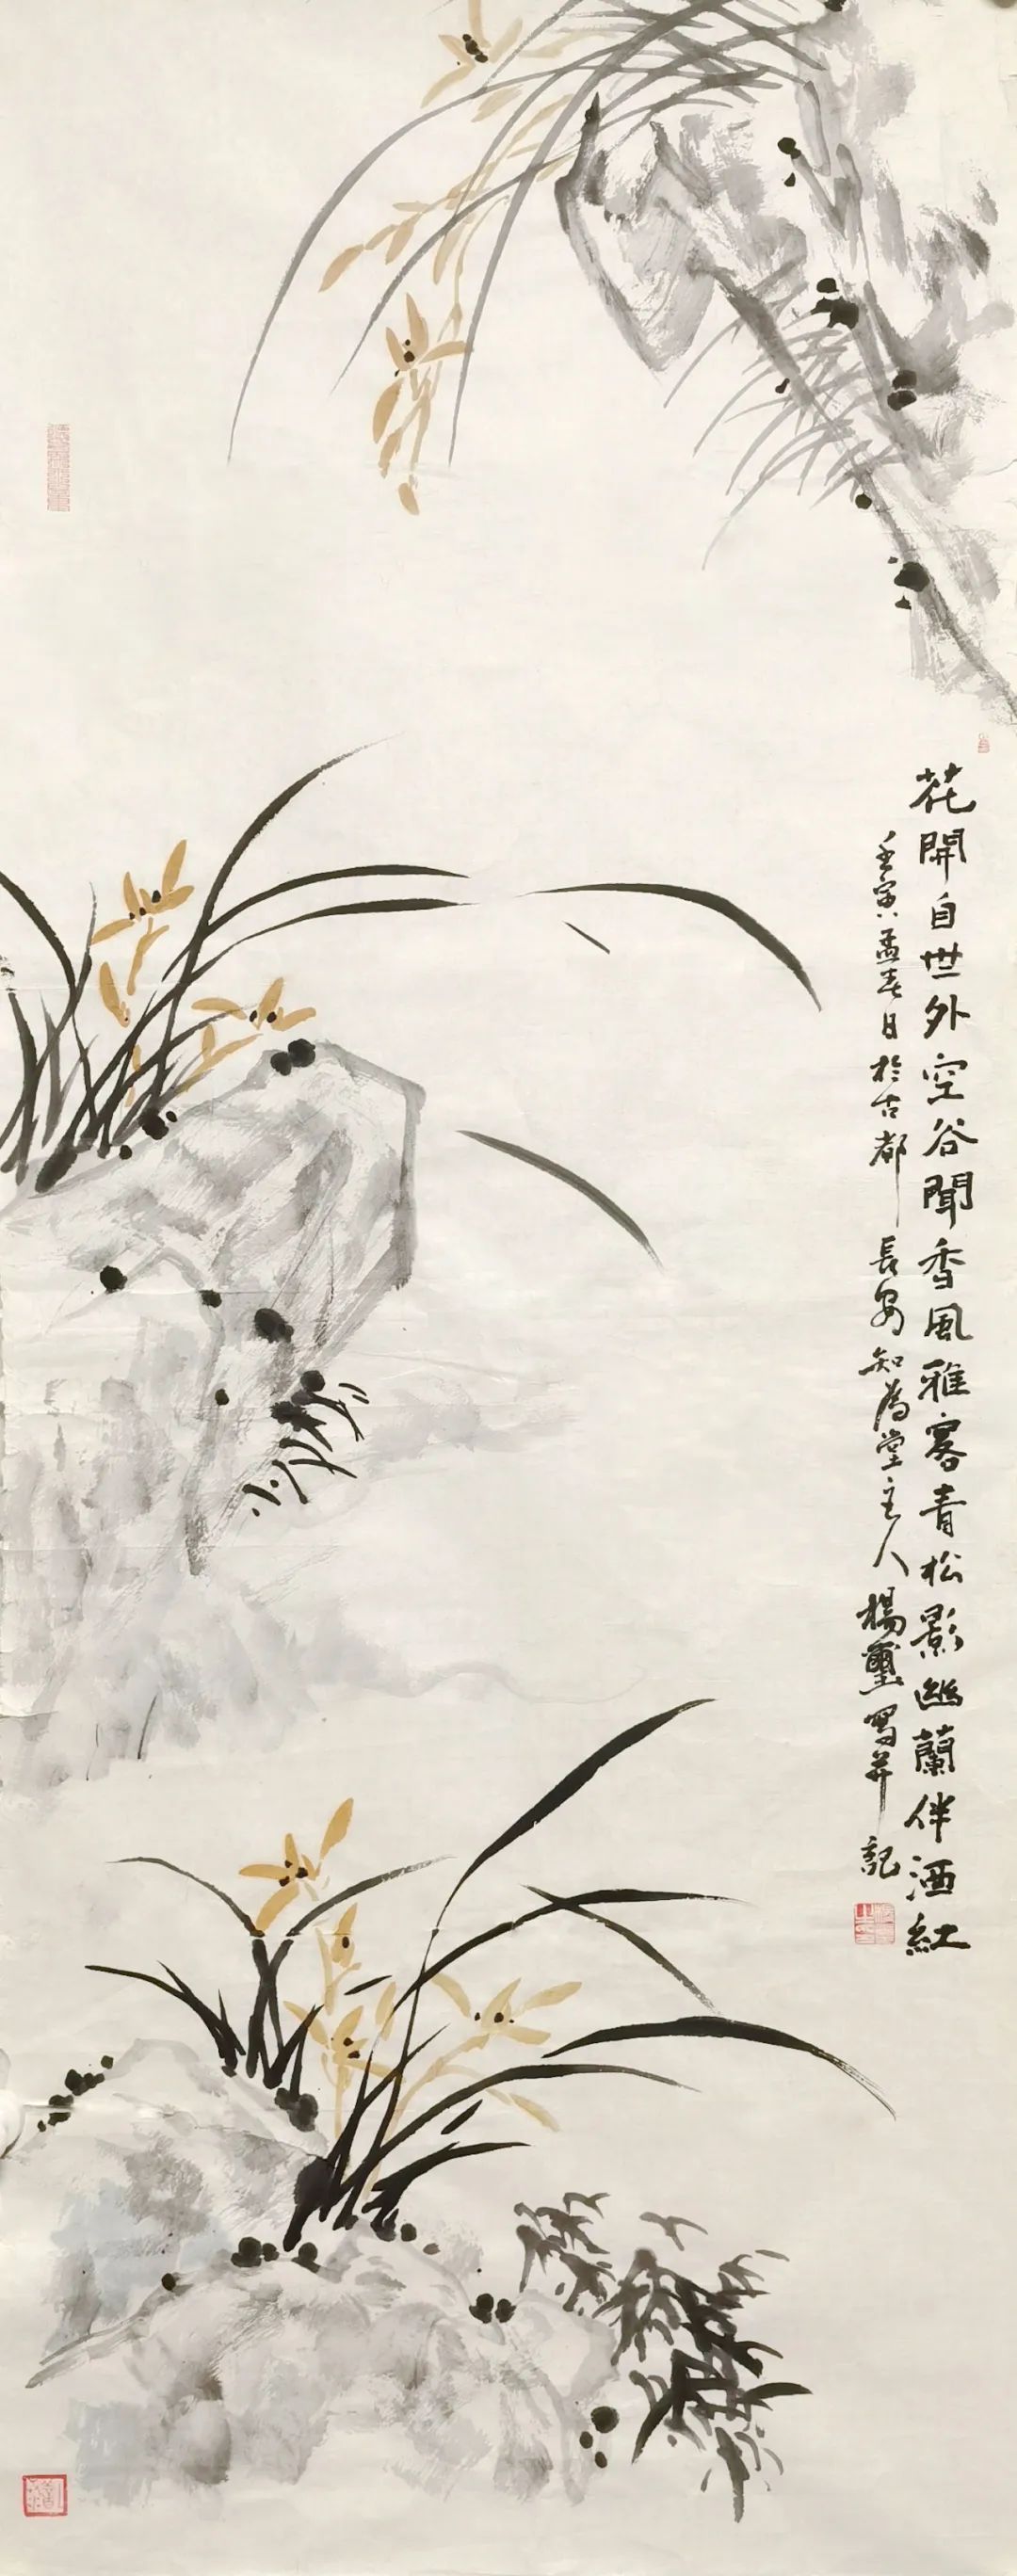 花開自世外空谷聞香風雅客青松影幽蘭伴酒紅
壬寅孟春日於古都長安知為堂主人楊璽寫并記